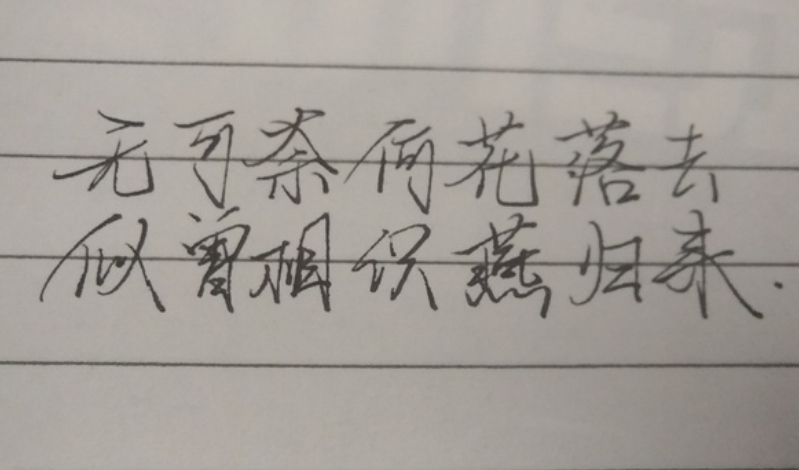 无可奈何花落去
似曾相识燕归来.